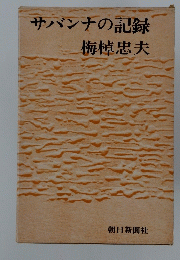 サバンナの記録
梅棹忠夫
朝日新聞社